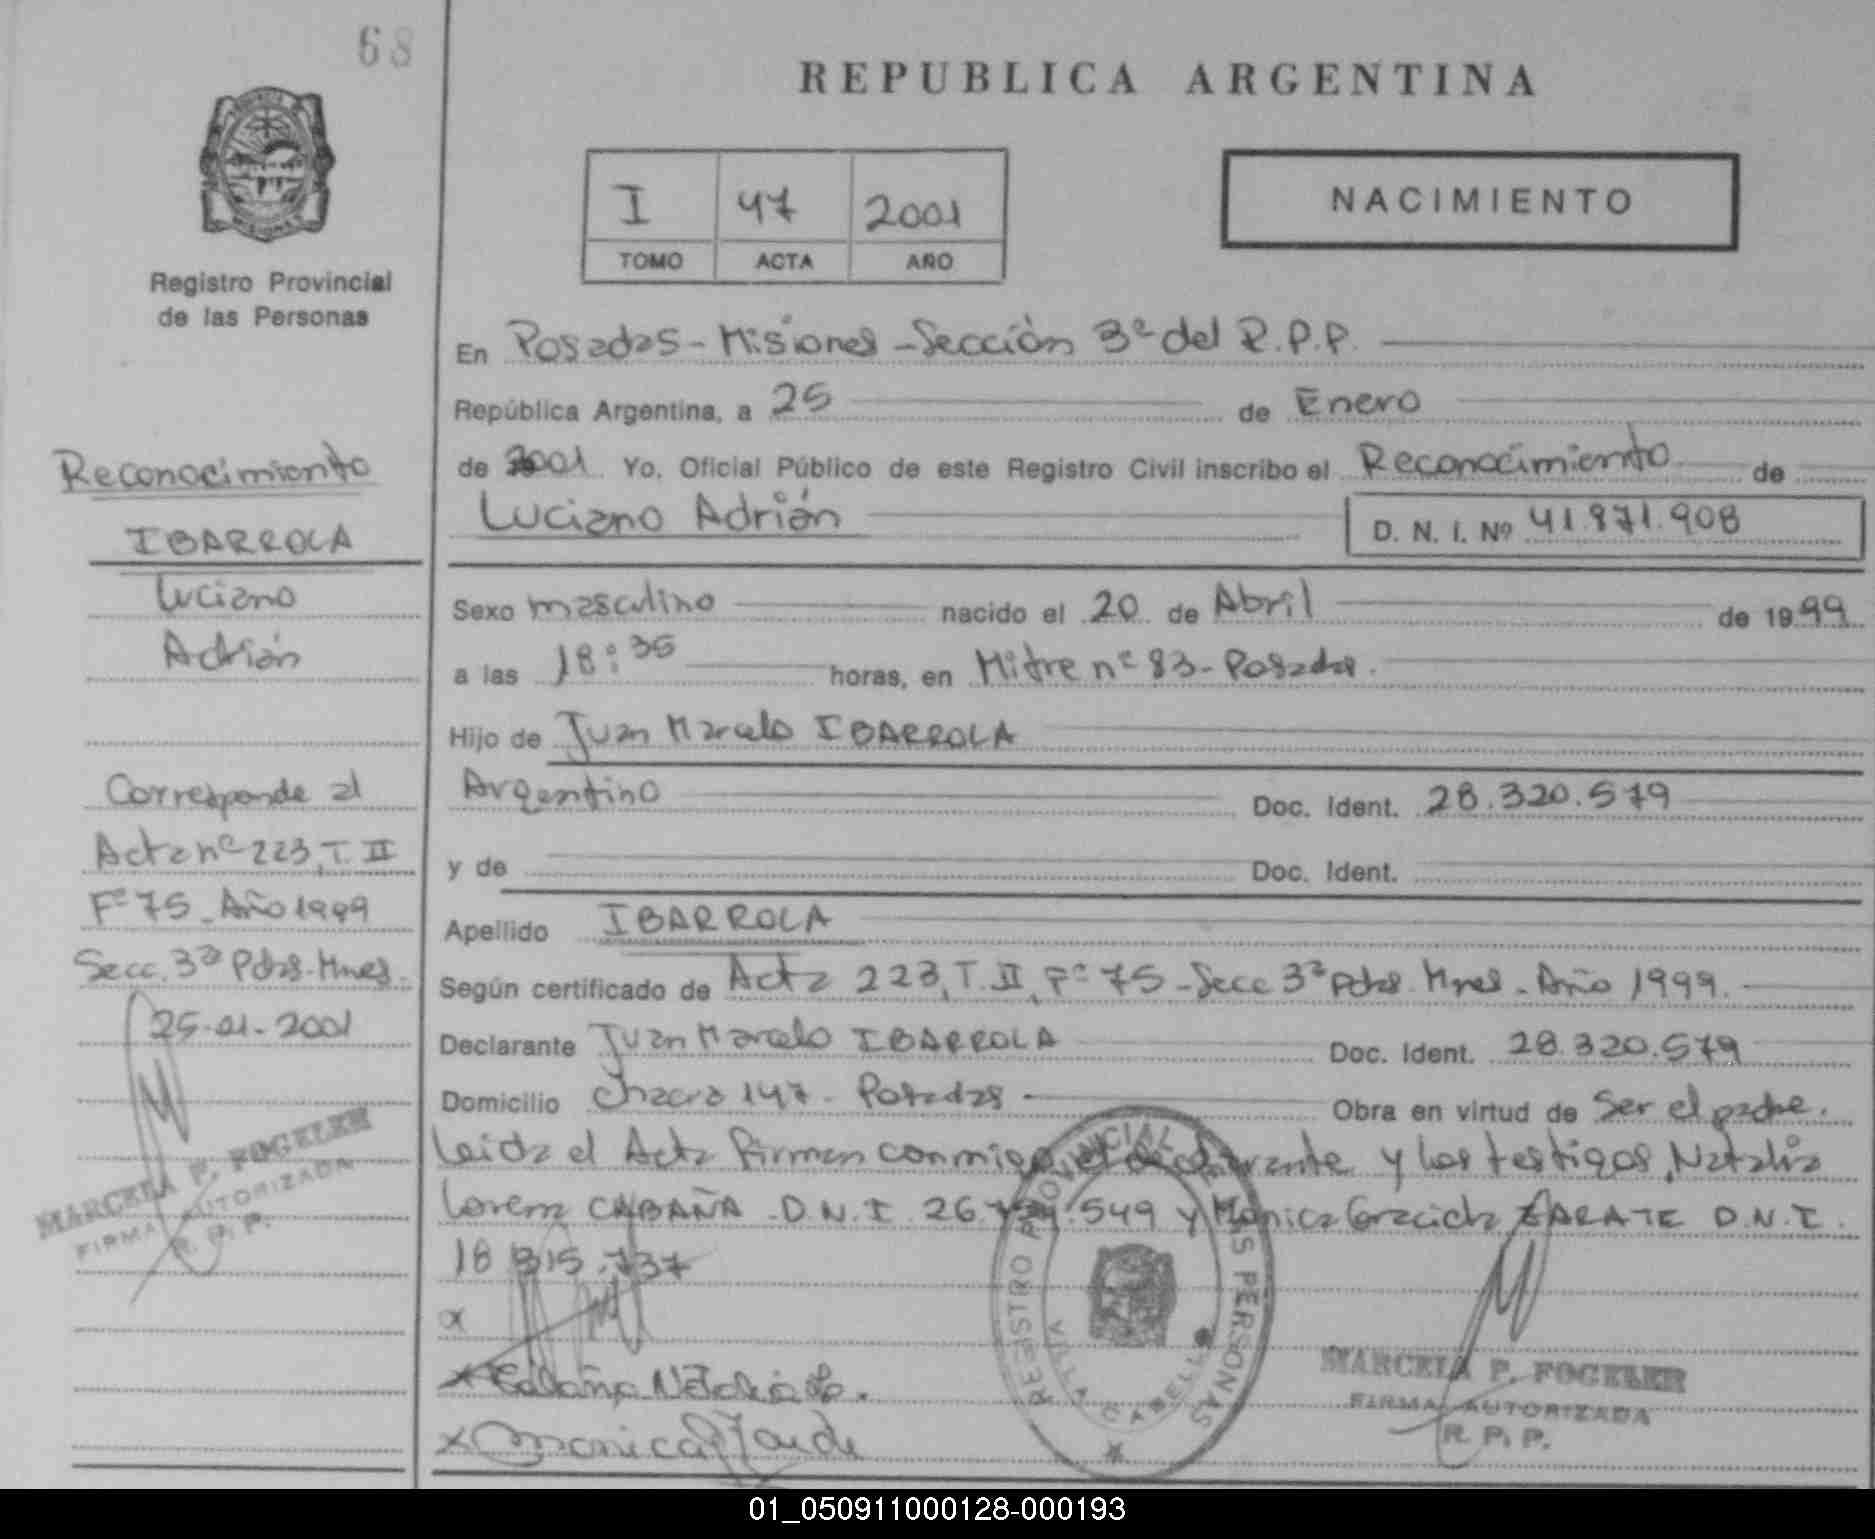 68
REPUBLICA ARGENTINA
I 47 2001
TOMO ACTA AÑO
NACIMIENTO
Registro Provincial
de las Personas
En Posadas - Misiones - Sección 3ª del R.P.P.
República Argentina, a 25 de Enero
de 2001. Yo, Oficial Público de este Registro Civil inscribo el Reconocimiento de
Luciano Adrián
D. N. I. Nº 41.871.908
Sexo masculino nacido el 20 de Abril de 1999
a las 18:35 horas, en Mitre nº 83 - Posadas.
Hijo de Juan Marcelo IBARROLA
Argentino Doc. Ident. 28.320.579
y de Doc. Ident.
Apellido IBARROLA
Según certificado de Acta 223, T. II, Fº 75 - Secc 3ª Pdas. Mnes - Año 1999.
Declarante Juan Marcelo IBARROLA Doc. Ident. 28.320.579
Domicilio Chacra 147 - Posadas - Obra en virtud de Ser el padre.
Leida el Acta firman conmigo el declarante y los testigos, Natalia
Lorena CABAÑA D.N.I. 26. .549 y Monica Graciela ZARATE D.N.I.
18 315.737
x
x Cabaña Natalia Lo.
x Monica
REGISTRO PROVINCIAL DE LAS PERSONAS
VILLA CABELLO
MARCELA P. FOGELER
FIRMA AUTORIZADA
R. P. P.
Reconocimiento
IBARROLA
Luciano
Adrián
Corresponde al
Acta nº 223, T. II
Fº 75 - Año 1999
Secc. 3ª Pdas - Mnes.
25-01-2001
MARCELA P. FOGELER
FIRMA AUTORIZADA
R. P. P.
01_050911000128-000193